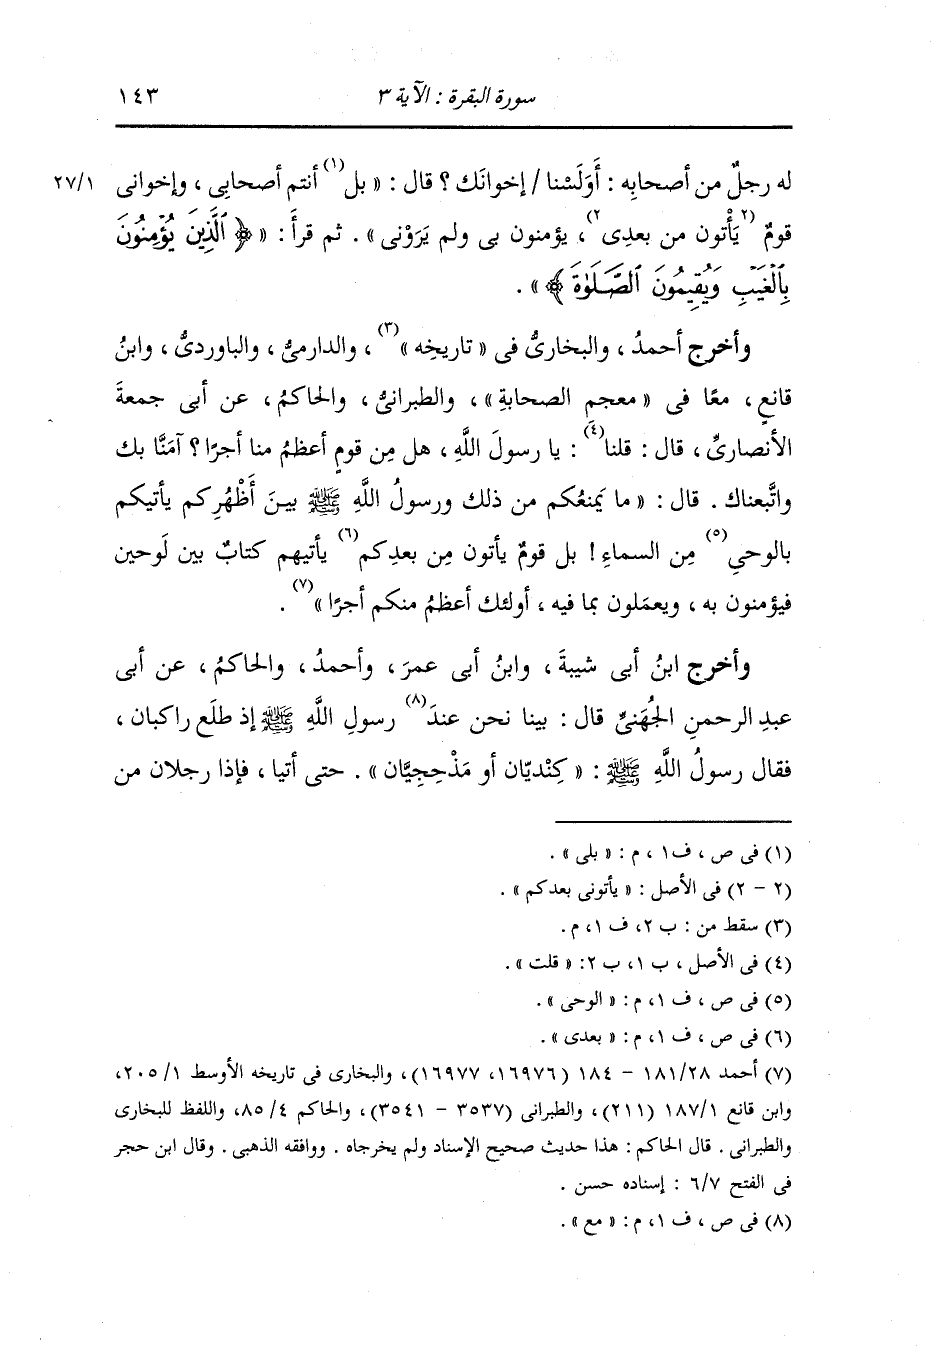 سورة البقرة : الآية ٣ ١٤٣
له رجلٌ من أصحابِه : أَوَلَسْنا / إخوانَك ؟ قال : « بل(١) أنتم أصحابِى ، وإخوانى ٢٧/١
قومٌ (٢يَأْتون من بعدِى٢) ، يؤمنون بى ولم يَرَوْنى » . ثم قرأَ : « ﴿ ٱلَّذِينَ يُؤْمِنُونَ
بِٱلْغَيْبِ وَيُقِيمُونَ ٱلصَّلَوٰةَ ﴾ » .
وأخرج أحمدُ ، والبخارىُّ فى « تاريخِه »(٣) ، والدارمىُّ ، والباوردىُّ ، وابنُ
قانعٍ ، معًا فى « معجمِ الصحابةِ » ، والطبرانىُّ ، والحاكمُ ، عن أبى جمعةَ
الأنصارىِّ ، قال : قلنا(٤) : يا رسولَ اللَّهِ ، هل مِن قومٍ أعظمُ منا أجرًا ؟ آمَنَّا بك
واتَّبعناك . قال : « ما يَمنعُكم من ذلك ورسولُ اللَّهِ ﷺ بينَ أَظْهُرِكم يأتيكم
بالوحىِ(٥) مِن السماءِ ! بل قومٌ يأتون مِن بعدِكم(٦) يأتيهم كتابٌ بين لَوحين
فيؤمنون به ، ويعمَلون بما فيه ، أولئك أعظمُ منكم أجرًا »(٧) .
وأخرج ابنُ أبى شيبةَ ، وابنُ أبى عمرَ ، وأحمدُ ، والحاكمُ ، عن أبى
عبدِ الرحمنِ الجُهَنىِّ قال : بينا نحن عندَ(٨) رسولِ اللَّهِ ﷺ إذ طلَع راكبان ،
فقال رسولُ اللَّهِ ﷺ : « كِنْديّان أو مَذْحِجِيَّان » . حتى أتيا ، فإذا رجلان من
(١) فى ص ، ف١ ، م : « بلى » .
(٢ - ٢) فى الأصل : « يأتونى بعدكم » .
(٣) سقط من : ب ٢، ف ١، م.
(٤) فى الأصل ، ب ١، ب ٢: « قلت » .
(٥) فى ص ، ف ١، م: « الوحى » .
(٦) فى ص ، ف ١، م: « بعدى » .
(٧) أحمد ١٨١/٢٨ - ١٨٤ (١٦٩٧٦، ١٦٩٧٧)، والبخارى فى تاريخه الأوسط ٢٠٥/١،
وابن قانع ١٨٧/١ (٢١١)، والطبرانى (٣٥٣٧ - ٣٥٤١)، والحاكم ٨٥/٤، واللفظ للبخارى
والطبرانى . قال الحاكم : هذا حديث صحيح الإسناد ولم يخرجاه . ووافقه الذهبى . وقال ابن حجر
فى الفتح ٦/٧ : إسناده حسن .
(٨) فى ص ، ف ١، م: « مع » .